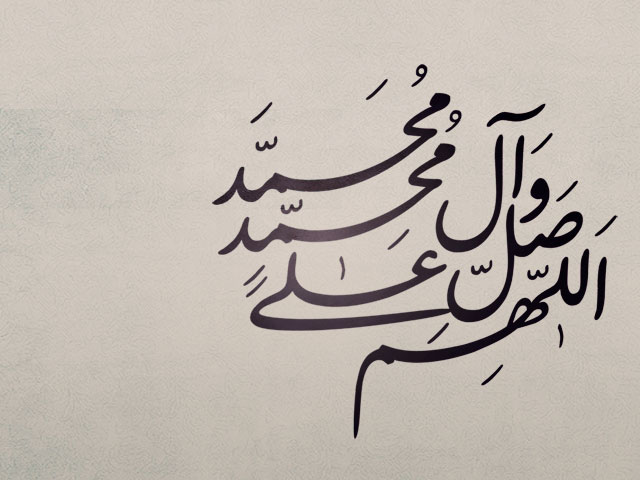 اللّهم
صلّ علی
محمدٍ
وآل
مُحمّد